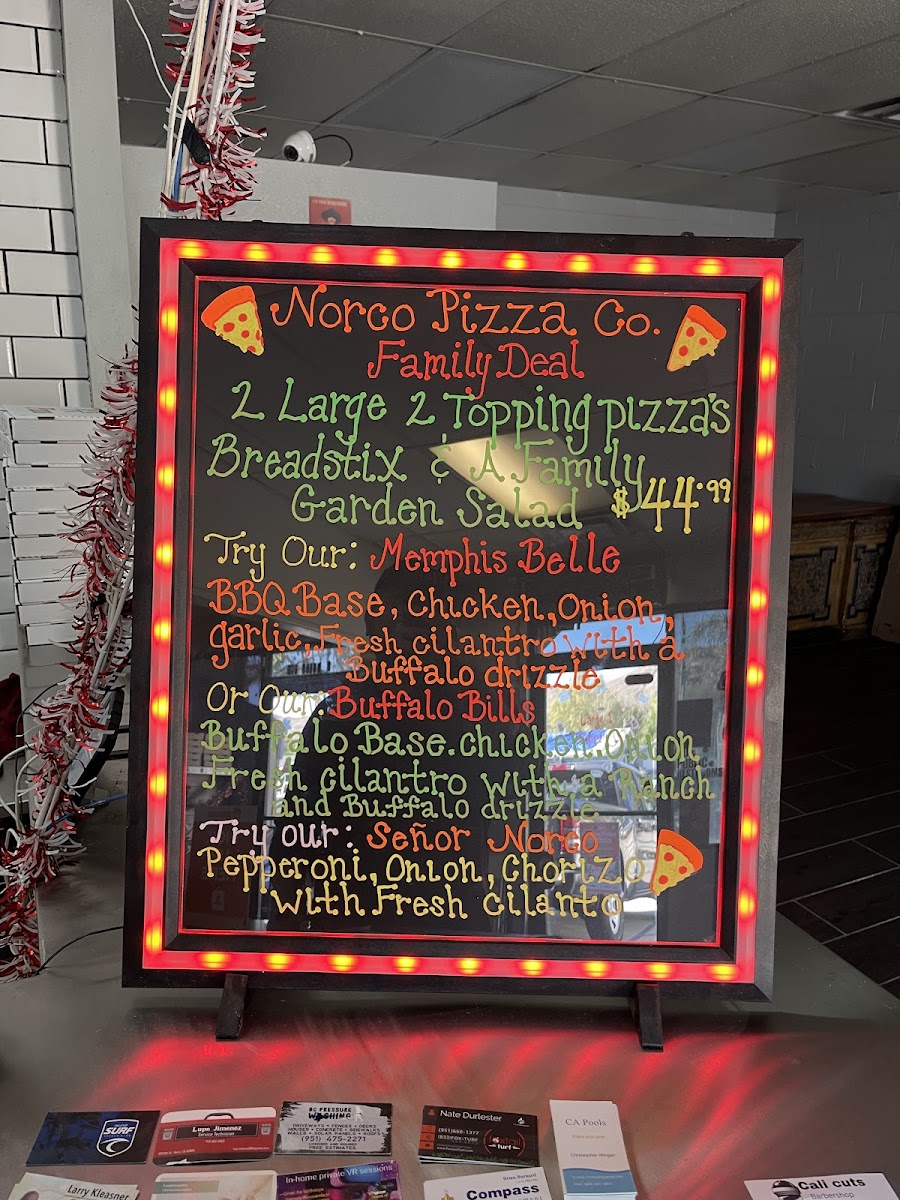 Norco Pizza Co.
Family Deal
2 Large 2 Topping pizza's
Breadstix & A Family
Garden Salad $44.99
Try Our: Memphis Belle
BBQ Base, Chicken, Onion,
garlic, Fresh cilantro with a
Buffalo drizzle
Or Our: Buffalo Bills
Buffalo Base. chicken. Onion
Fresh cilantro with a Ranch
and Buffalo drizzle
Try our: Señor Norco
Pepperoni, Onion, Chorizo
with Fresh cilanto
SURF
Lupe Jimenez
Service Technician
PRESSURE
WASHING
DRIVEWAYS • FENCES • DECKS
HOUSES • CONCRETE • SIDEWALKS
WALLS • SOLAR PANELS • ROOFS
(951) 475-2271
FREE ESTIMATES
Nate Durlester
(951)650-1377
turf
CA Pools
In-home private VR sessions
Larry Kleasner
Compass
Call cuts
Barbershop